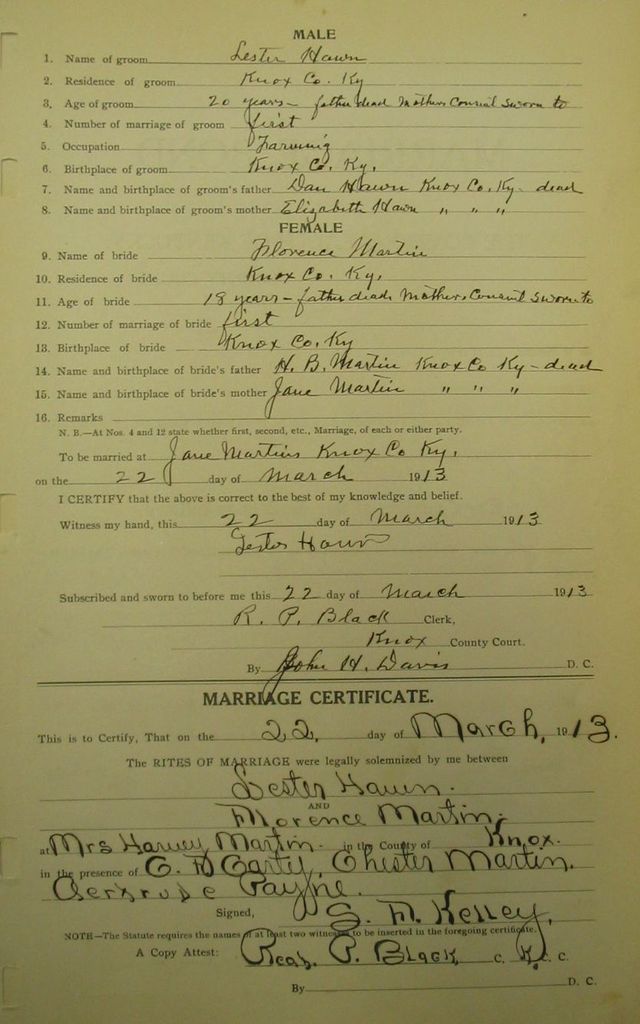 MALE
1. Name of groom Lester Hawn
2. Residence of groom Knox Co. Ky
3. Age of groom 20 years - father dead Mothers Consent sworn to
4. Number of marriage of groom first
5. Occupation Farming
6. Birthplace of groom Knox Co. Ky.
7. Name and birthplace of groom's father Dan Hawn Knox Co. Ky - dead
8. Name and birthplace of groom's mother Elizabeth Hawn " " "
FEMALE
9. Name of bride Florence Martin
10. Residence of bride Knox Co. Ky.
11. Age of bride 18 years - father dead, Mothers Consent sworn to
12. Number of marriage of bride first
13. Birthplace of bride Knox Co. Ky
14. Name and birthplace of bride's father H. B. Martin Knox Co Ky - dead
15. Name and birthplace of bride's mother Jane Martin " " "
16. Remarks
N. B.—At Nos. 4 and 12 state whether first, second, etc., Marriage, of each or either party.
To be married at Jane Martins Knox Co Ky.
on the 22 day of March 1913
I CERTIFY that the above is correct to the best of my knowledge and belief.
Witness my hand, this 22 day of March 1913
Lester Hawn
Subscribed and sworn to before me this 22 day of March 1913
R. P. Black Clerk,
Knox County Court.
By John H. Davis D. C.
MARRIAGE CERTIFICATE.
This is to Certify, That on the 22, day of March, 1913.
The RITES OF MARRIAGE were legally solemnized by me between
Lester Hawn.
AND
Florence Martin.
at Mrs Harvey Martin. in the County of Knox.
in the presence of Chester Martin.
Gertrude Payne.
Signed, Kelley,
NOTE—The Statute requires the names of at least two witnesses to be inserted in the foregoing certificate.
A Copy Attest: Read. P. Black C. K. C. C.
By D. C.